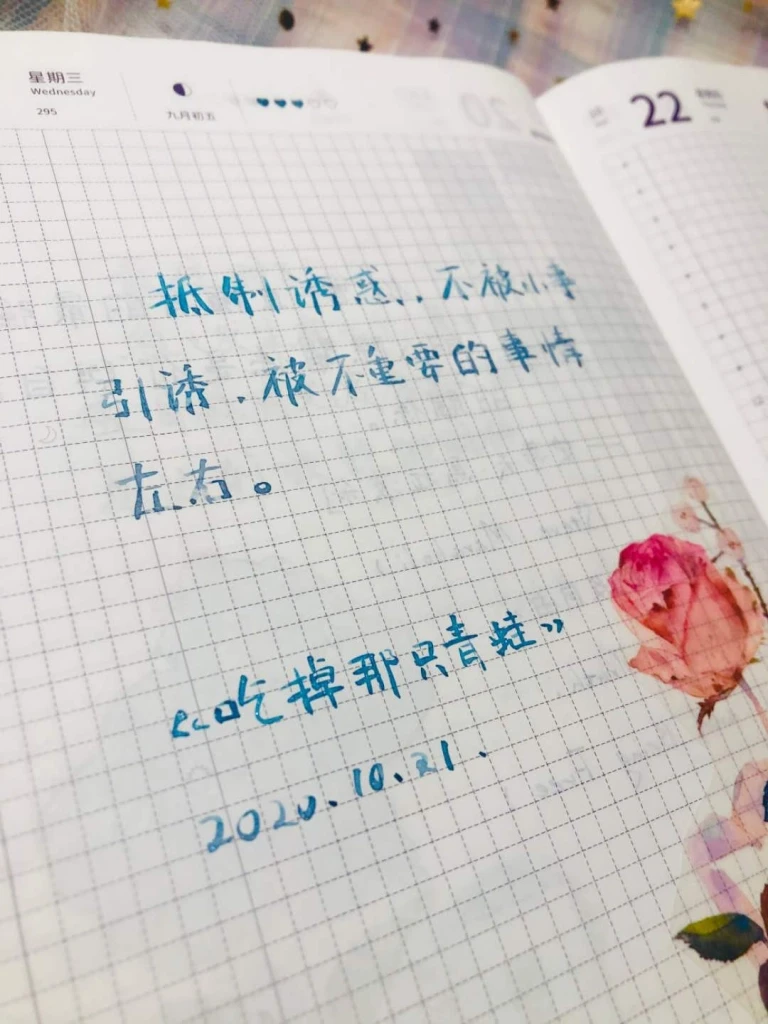 星期三
Wednesday
295
九月初五
22
抵制诱惑,不被小事
引诱,被不重要的事情
左右。
《吃掉那只青蛙》
2020.10.21.